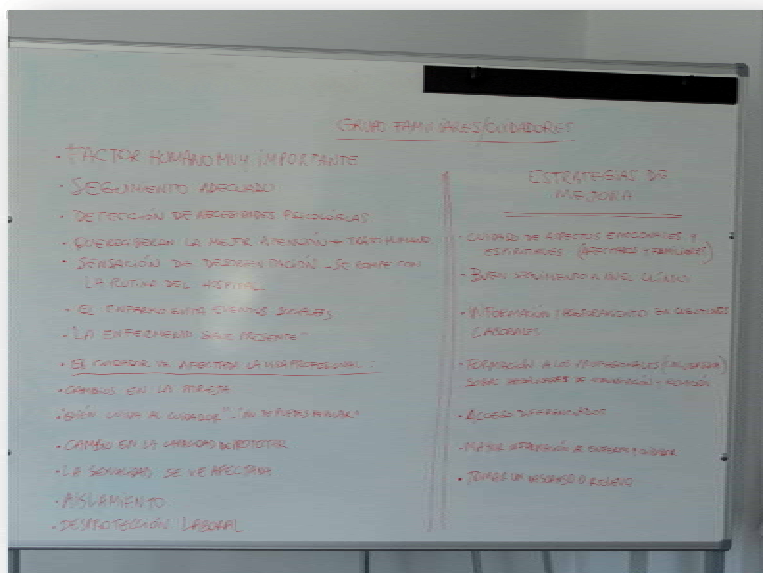 GRUPO FAMILIARES/CUIDADORES
· FACTOR HUMANO MUY IMPORTANTE
· SEGUIMIENTO ADECUADO
· DETECCION DE NECESIDADES PSICOLOGICAS
· QUE RECIBIERAN LA MEJOR ATENCIÓN + TRATO HUMANO
· SENSACIÓN DE DESORIENTACIÓN - SE ROMPE CON
LA RUTINA DEL HOSPITAL
· EL ENFERMO EVITA EVENTOS SOCIALES
· "LA ENFERMEDAD SIGUE PRESENTE"
· EL CUIDADOR VE AFECTADA LA VIDA PROFESIONAL:
· CAMBIOS EN LA PAREJA
· "QUIÉN CUIDA AL CUIDADOR" "NO TE PUEDES
· CAMBIO EN LA CAPACIDAD DE PROTECTOR
· LA SEXUALIDAD SE VE AFECTADA
· AISLAMIENTO
· DESPROTECCIÓN LABORAL
ESTRATEGIAS DE
MEJORA
· CUIDADO DE ASPECTOS EMOCIONALES Y
ESPIRITUALES (AFECTADOS Y FAMILIARES)
· BUEN SEGUIMIENTO A NIVEL CLÍNICO
· INFORMACIÓN / ASESORAMIENTO EN CUESTIONES
LABORALES
· FORMACIÓN A LOS PROFESIONALES
SOBRE HABILIDADES DE COMUNICACIÓN Y RELACIÓN
· ACCESO DIFERENCIADOS
· MAYOR INFORMACIÓN AL ENFERMO Y CUIDADOR
· TOMAR UN DESCANSO O RELEVO